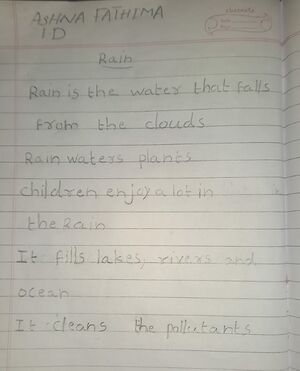 ASHNA FATHIMA
1D
Rain
Rain is the water that falls
from the clouds
Rain waters plants
children enjoy a lot in
the Rain
It fills lakes, rivers and
ocean
It cleans the pollutants